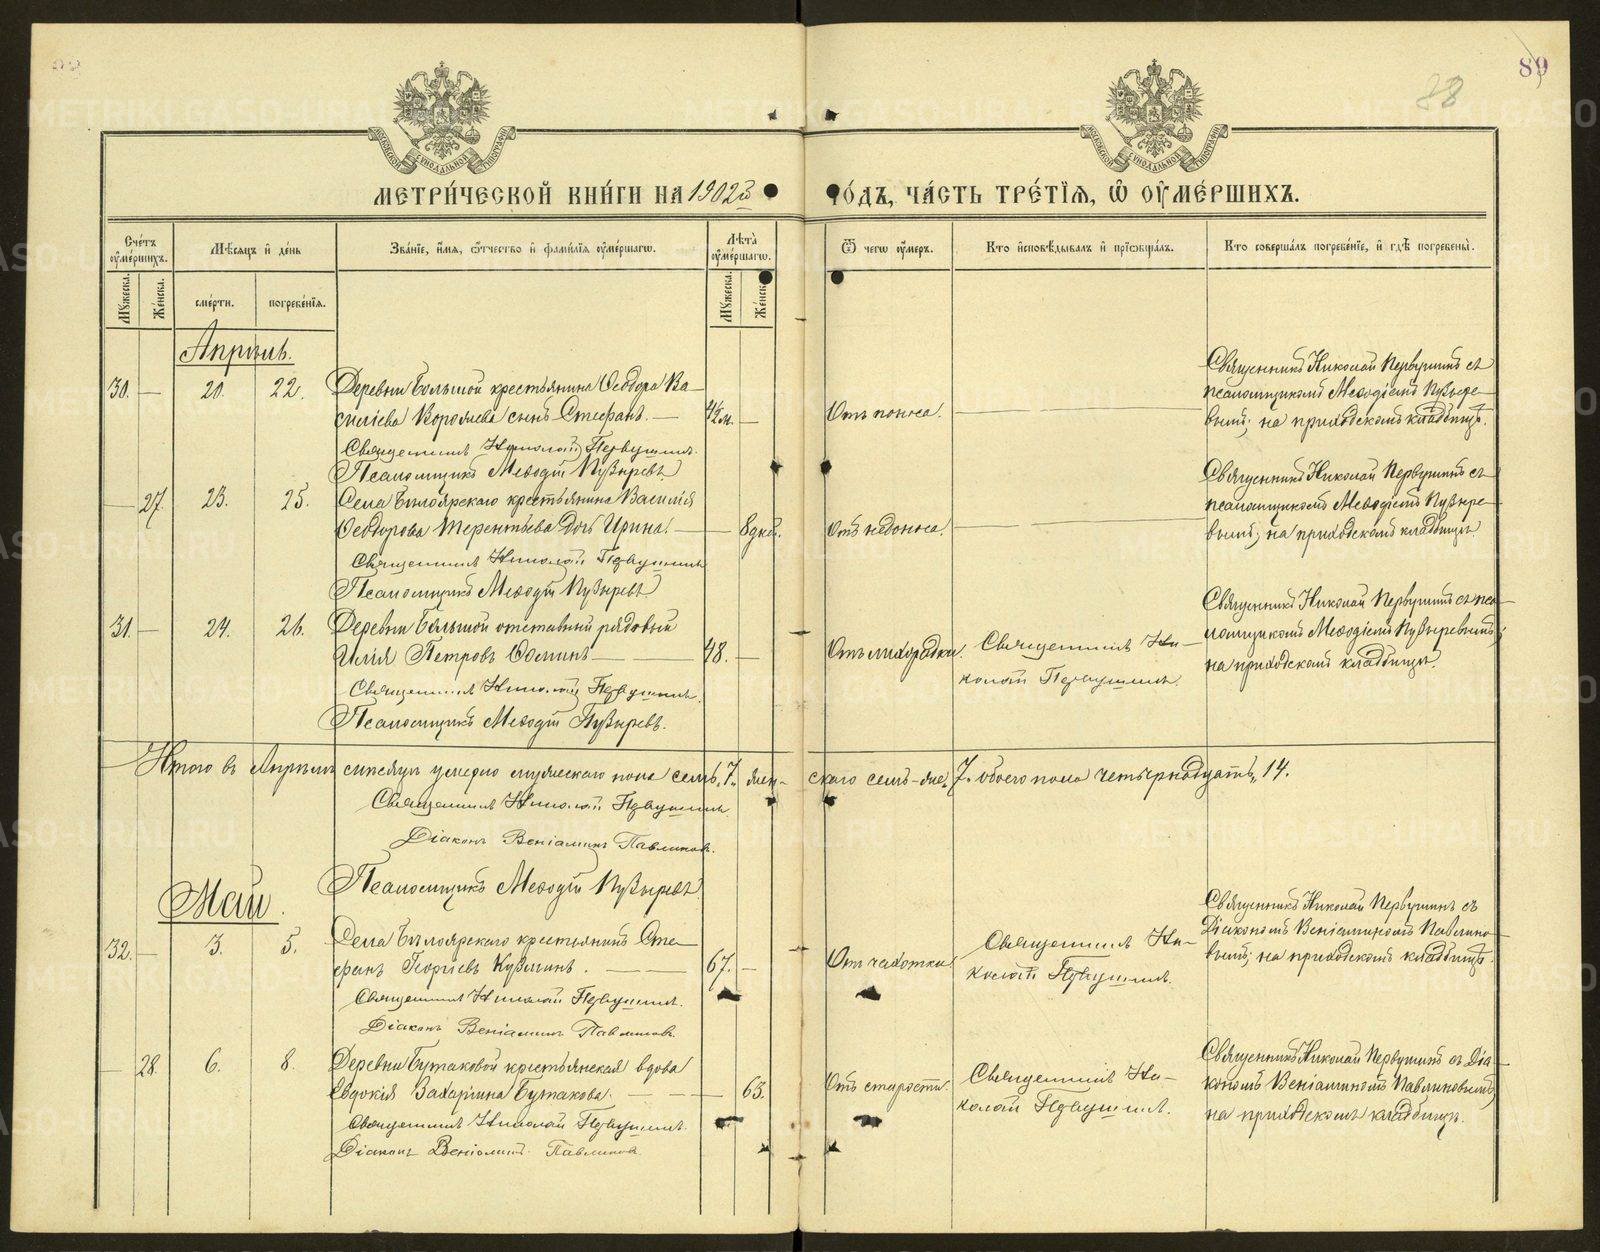 89
88
МЕТРИ́ЧЕСКОЙ КНИ́ГИ НА 1902й ГО́ДЪ, ЧА́СТЬ ТРЕ́ТІѦ, Ѿ ОУ҆МЕ́РШИХЪ.
Сче́тъ оу҆ме́ршихъ.
Мѣ́сяцъ и҆ де́нь
Зва́нїе, и҆́мя, ѻ҆́тчество и҆ фами́лїя оу҆ме́ршагѡ.
Лѣ́та̀ оу҆ме́ршагѡ.
Ѿ чегѡ̀ оу҆́меръ.
Кто̀ и҆сповѣ́дывалъ и҆ прїѡбща́лъ.
Кто̀ соверша́лъ погребе́нїе, и҆ гдѣ̀ погребены̀.
Мꙋ́жеска.
Же́нска.
сме́рти.
погребе́нїя.
Мꙋ́жеска.
Же́нска.
Апрѣль.
30. — 20. 22. Деревни Большой крестьянина Ѳеодора Ва-
силіева Воро сынъ Стефанъ. — 4½м. —
Священникъ Николай Первушинъ.
Псаломщикъ Меѳодій Пузыревъ
Отъ поноса.
Священникъ Николай Первушинъ съ
псаломщикомъ Меѳодіемъ Пузыре-
вымъ; на приходскомъ кладбищѣ.
— 27. 23. 25. Села Бѣлоярскаго крестьянина Василія
Ѳеодорова Терентьева дочь Ирина. — — 8 дней.
Священникъ Николай Первушинъ
Псаломщикъ Меѳодій Пузыревъ
Отъ недоноса.
Священникъ Николай Первушинъ съ
псаломщикомъ Меѳодіемъ Пузыре-
вымъ; на приходскомъ кладбищѣ
31. — 24. 26. Деревни Большой отставный рядовый
Илія Петровъ Ѳоминъ — — 48. —
Священникъ Николай Первушинъ.
Псаломщикъ Меѳодій Пузыревъ.
Отъ лихорадки.
Священникъ Ни-
колай Первушинъ.
Священникъ Николай Первушинъ съ пса-
ломщикомъ Меѳодіемъ Пузыревымъ;
на приходскомъ кладбищѣ.
Итого въ Апрѣлѣ мѣсяцѣ умерло мужескаго пола семь, 7. жен-скаго семь-же, 7. обоего пола четырнадцать, 14.
Священникъ Николай Первушинъ
Діаконъ Веніаминъ Павлиновъ.
Псаломщикъ Меѳодій Пузыревъ
Май.
32. — 3. 5. Села Бѣлоярскаго крестьянинъ Сте-
фанъ Георгіевъ Кузминъ. — — 67. —
Священникъ Николай Первушинъ.
Діаконъ Веніаминъ Павлиновъ.
Отъ чахотки.
Священникъ Ни-
колай Первушинъ.
Священникъ Николай Первушинъ съ
Діакономъ Веніаминомъ Павлино-
вымъ; на приходскомъ кладбищѣ.
— 28. 6. 8. Деревни Бутаковой крестьянская вдова
Евдокія Захаріина Бутакова. — — — 63.
Священникъ Николай Первушинъ.
Діаконъ Веніаминъ Павлиновъ
Отъ старости.
Священникъ Ни-
колай Первушинъ.
Священникъ Николай Первушинъ съ Діа-
кономъ Веніаминомъ Павлиновымъ;
на приходскомъ кладбищѣ.